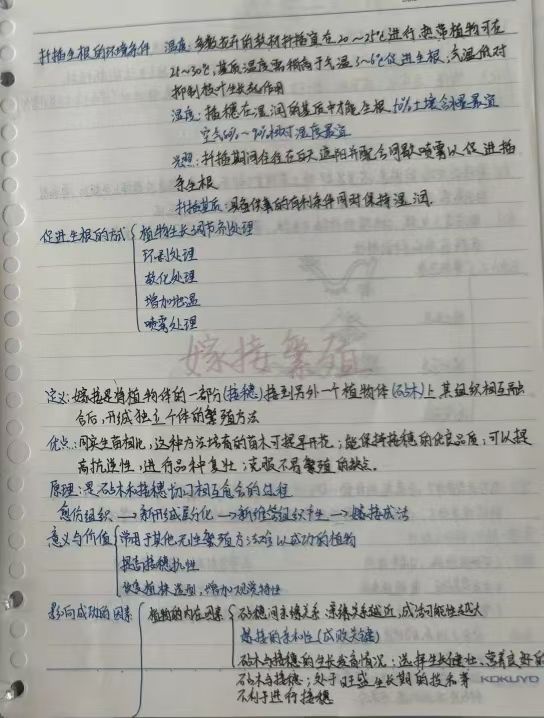 扦插生根的环境条件 温度:多数花卉的软材扦插宜在20~25℃进行,热带植物可在
25~30℃,基质温度需稍高于气温3~6℃促进生根,气温低对
抑制枝叶生长起作用
湿度:插穗在湿润的基质中才能生根,50%土壤含水量最宜
空气80%~90%相对湿度最宜
光照:扦插期间往往在白天遮阳并配合间歇喷雾以促进插
条生根
扦插基质:具备供氧的有利条件同时保持湿润
促进生根的方式 植物生长调节剂处理
环割处理
软化处理
增加地温
喷雾处理
嫁接繁殖
定义:嫁接是将植物体的一部分(接穗)接到另外一个植物体(砧木)上,其组织相互融
合后,形成独立个体的繁殖方法
优点:同实生苗相比,这种方法培育的苗木可提早开花;能保持接穗的优良品质;可以提
高抗逆性,进行品种复壮;克服不易繁殖的缺点。
原理:是砧木和接穗切口相互愈合的过程
愈伤组织→新形成层分化→新维管组织产生→嫁接成活
意义与价值 常用于其他无性繁殖方法难以成功的植物
提高接穗抗性
恢复植株造型,增加观赏特性
影响成功的因素 植物的内在因素 砧穗间亲缘关系:亲缘关系越近,成活可能性越大
嫁接的亲和性(成败关键)
砧木与接穗的生长发育情况:选择生长健壮、营养良好的
砧木与接穗;处于旺盛生长期的
不利于进行接穗
KOKUYO